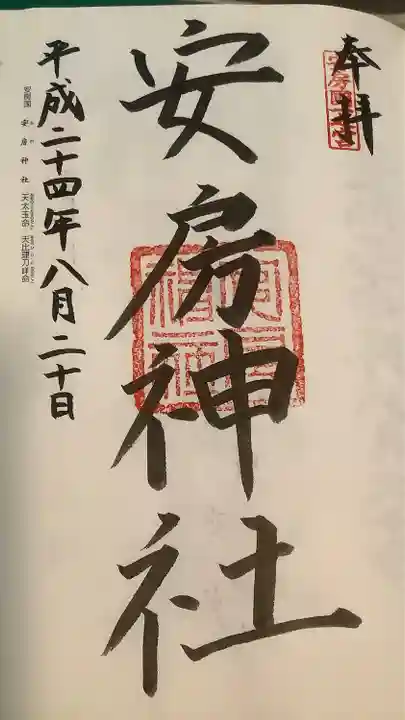 奉拝
安房國一宮
安房神社
平成二十四年八月二十日
安房国 安房神社 天太玉命 天比理刀咩命